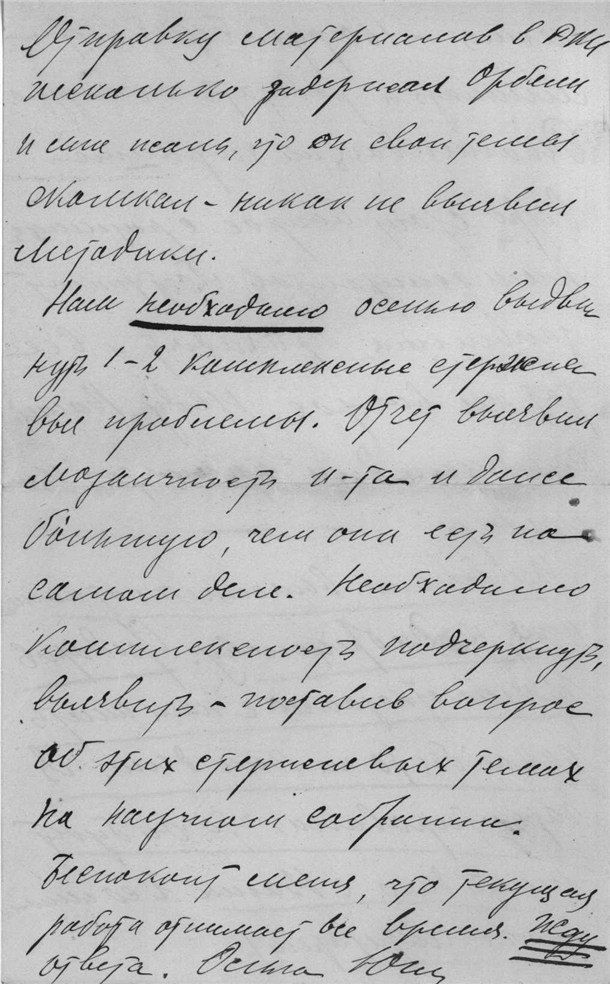 Отправку материалов в
несколько задержал Орбели
и мне жаль, что он свои темы
скомкал - никак не выявил
методики.
Нам необходимо осенью выдви
нуть 1-2 комплексные стержне
вые проблемы. Отчет выявил
мозаичность и-та и даже
бо́льшую, чем она есть на
самом деле. Необходимо
комплексность подчеркнуть,
выявить - поставив вопрос
об этих стержневых темах
на научном собрании.
Беспокоит меня, что текущая
работа отнимает все время. Жду
ответа.